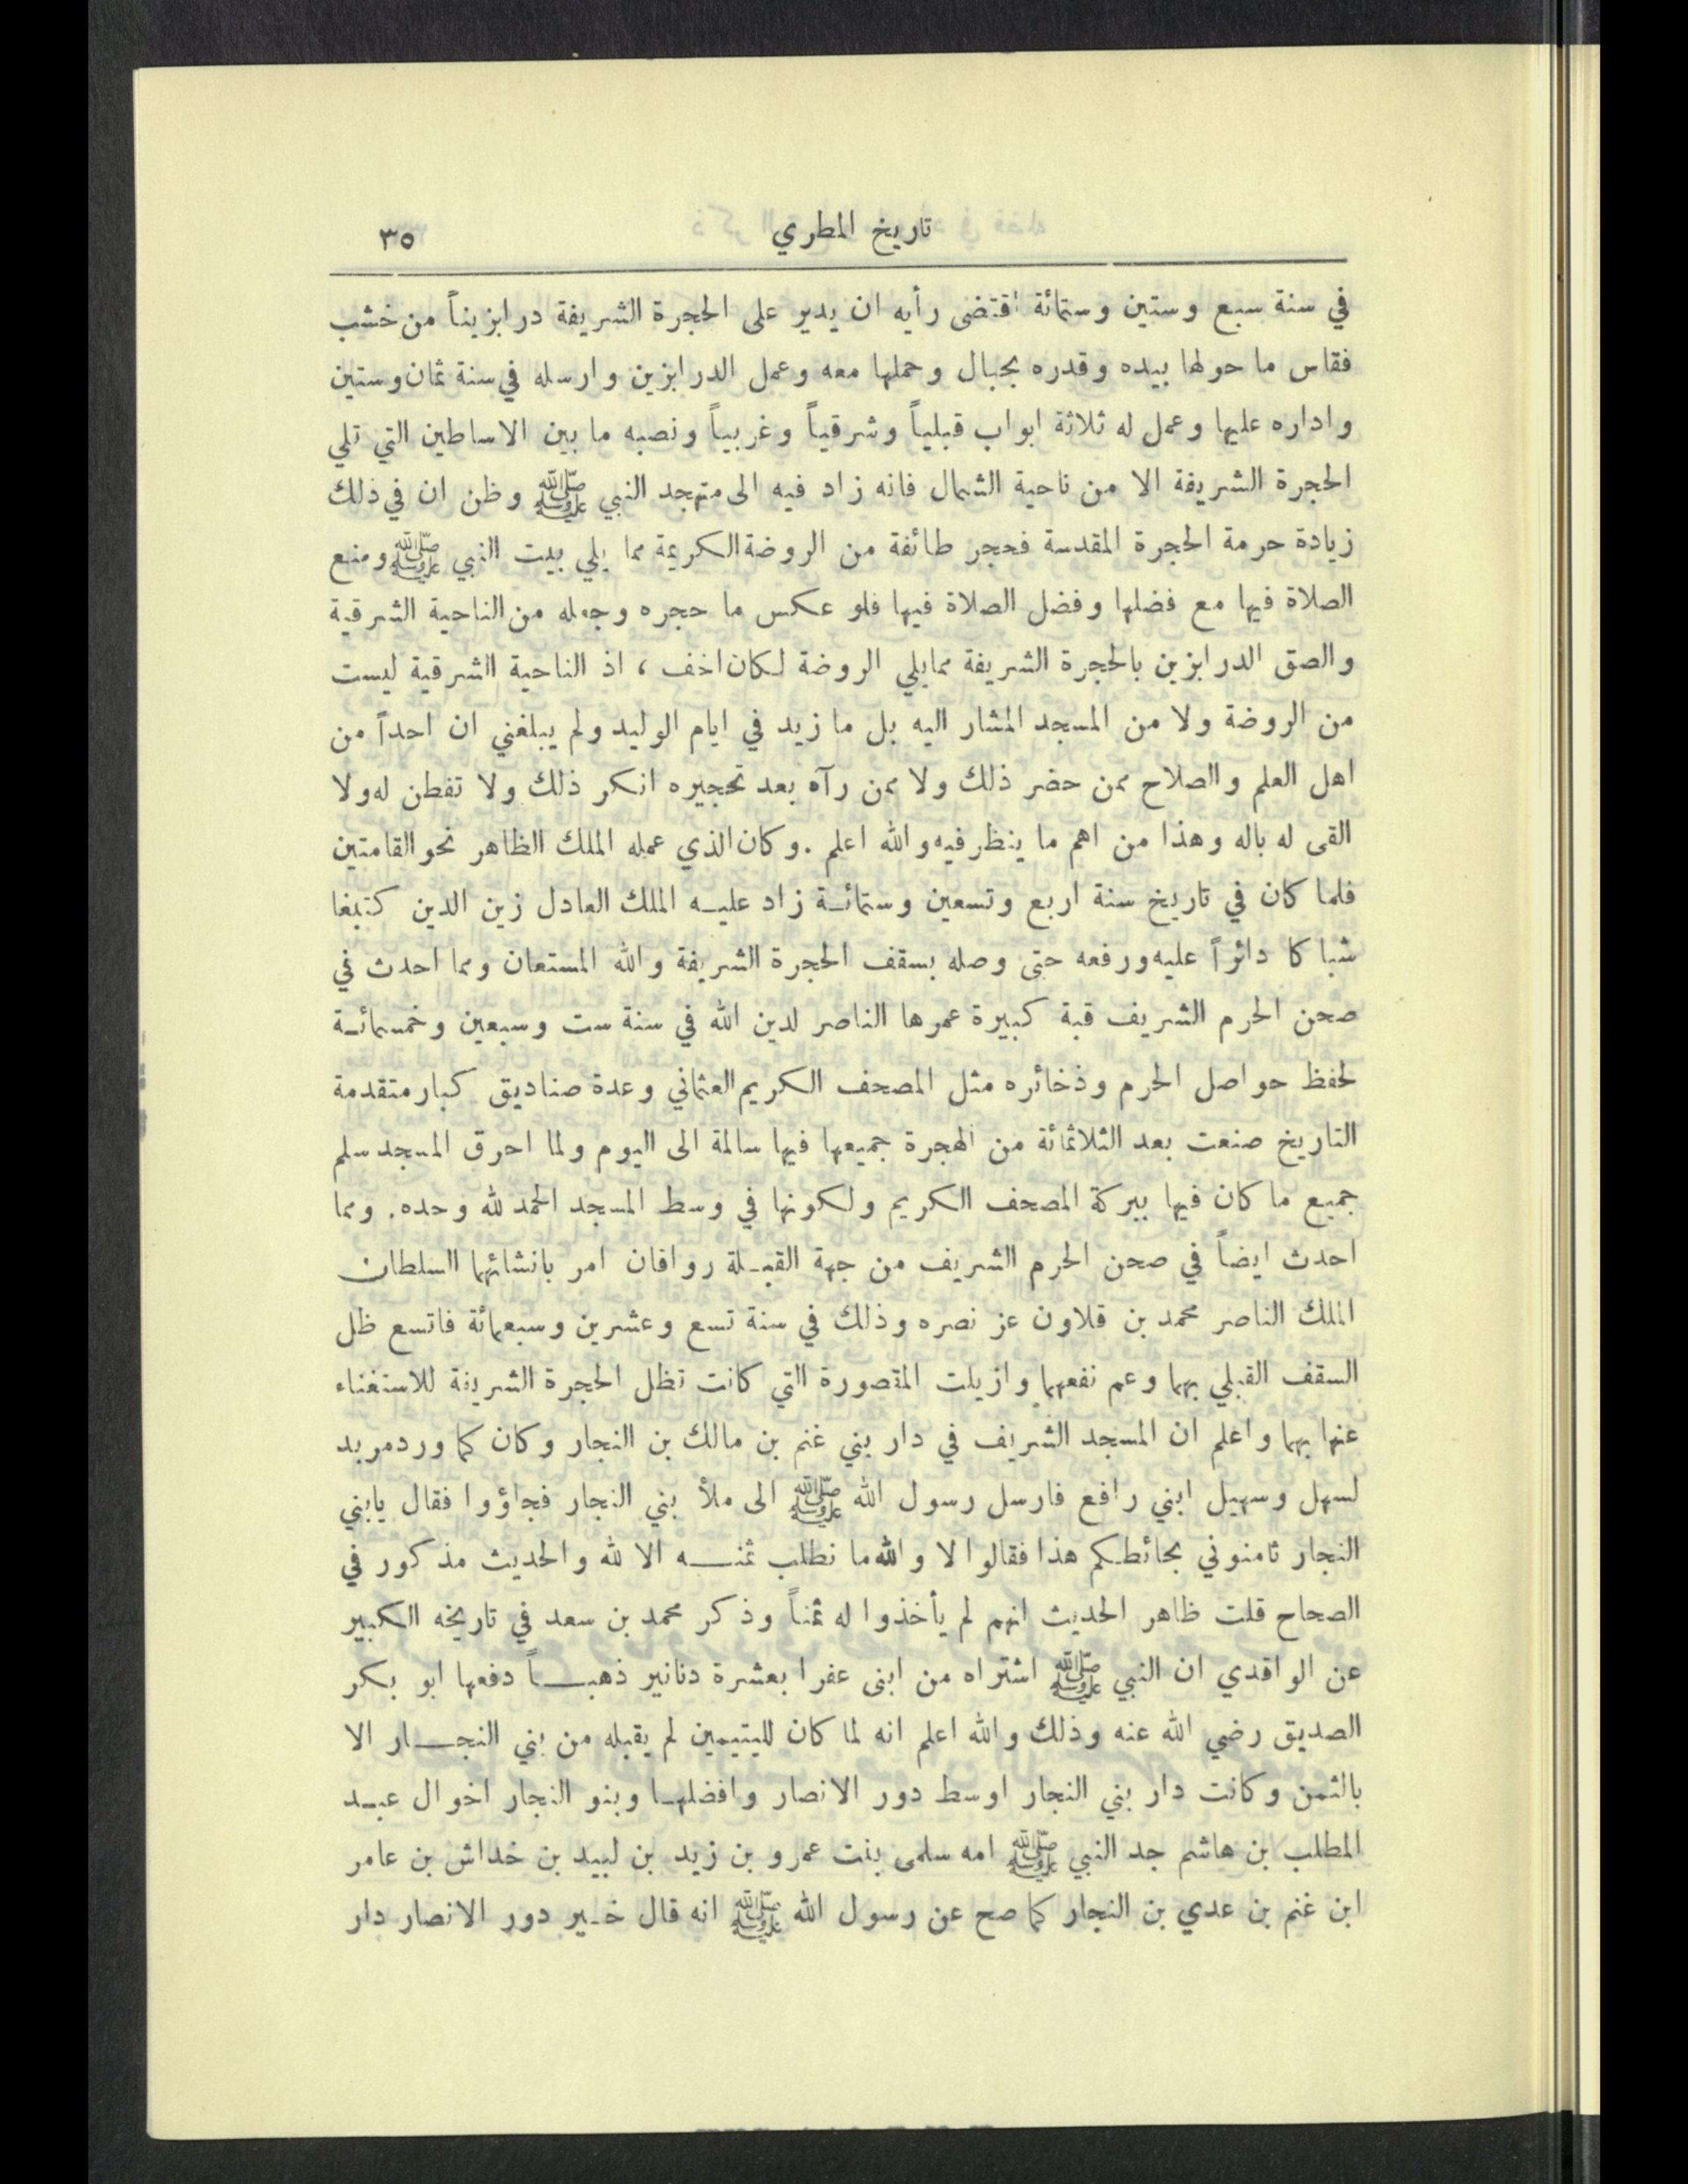 تاريخ المطري ٣٥
في سنة سبع وستين وستمائة اقتضى رأيه ان يدير على الحجرة الشريفة درابزيناً من خشب
فقاس ما حولها بيده وقدره بحبال وحملها معه وعمل الدرابزين وارسله في سنة ثمان وستين
واداره عليها وعمل له ثلاثة ابواب قبلياً وشرقياً وغربياً ونصبه ما بين الاساطين التي تلي
الحجرة الشريفة الا من ناحية الشمال فانه زاد فيه الى متهجد النبي ﷺ وظن ان في ذلك
زيادة حرمة الحجرة المقدسة فحجر طائفة من الروضة الكريمة مما يلي بيت النبي ﷺ ومنع
الصلاة فيها مع فضلها وفضل الصلاة فيها فلو عكس ما حجره وجعله من الناحية الشرقية
والصق الدرابزين بالحجرة الشريفة ممايلي الروضة لكان اخف ، اذ الناحية الشرقية ليست
من الروضة ولا من المسجد المشار اليه بل ما زيد في ايام الوليد ولم يبلغني ان احداً من
اهل العلم والصلاح ممن حضر ذلك ولا ممن رآه بعد تحجيره انكر ذلك ولا تفطن له ولا
القى له باله وهذا من اهم ما ينظر فيه والله اعلم . وكان الذي عمله الملك الظاهر نحو القامتين
فلما كان في تاريخ سنة اربع وتسعين وستمائـة زاد عليـه الملك العادل زين الدين كتبغا
شباكا دائراً عليه ورفعه حتى وصله بسقف الحجرة الشريفة والله المستعان ومما احدث في
صحن الحرم الشريف قبة كبيرة عمرها الناصر لدين الله في سنة ست وسبعين وخمسمائـة
لحفظ حواصل الحرم وذخائره مثل المصحف الكريم العثماني وعدة صناديق كبار متقدمة
التاريخ صنعت بعد الثلاثمائة من الهجرة جميعها فيها سالمة الى اليوم ولما احرق المسجد سلم
جميع ما كان فيها ببركة المصحف الكريم ولكونها في وسط المسجد الحمد لله وحده . ومما
احدث ايضاً في صحن الحرم الشريف من جهة القبـلة رواقان امر بانشائهما السلطان
الملك الناصر محمد بن قلاون عز نصره وذلك في سنة تسع وعشرين وسبعمائة فاتسع ظل
السقف القبلي بهما وعم نفعهما وازيلت المقصورة التي كانت تظل الحجرة الشريفة للاستغناء
عنها بهما واعلم ان المسجد الشريف في دار بني غنم بن مالك بن النجار وكان كما ورد مربد
لسهل وسهيل ابني رافع فارسل رسول الله ﷺ الى ملأ بني النجار فجاؤوا فقال يابني
النجار ثامنوني بحائطكم هذا فقالوا لا والله ما نطلب ثمنـــه الا لله والحديث مذكور في
الصحاح قلت ظاهر الحديث انهم لم يأخذوا له ثمناً وذكر محمد بن سعد في تاريخه الكبير
عن الواقدي ان النبي ﷺ اشتراه من ابنى عفرا بعشرة دنانير ذهبــاً دفعها ابو بكر
الصديق رضي الله عنه وذلك والله اعلم انه لما كان لليتيمين لم يقبله من بني النجــار الا
بالثمن وكانت دار بني النجار اوسط دور الانصار وافضلهـا وبنو النجار اخوال عبـد
المطلب بن هاشم جد النبي ﷺ امه سلمى بنت عمرو بن زيد بن لبيد بن خداش بن عامر
ابن غنم بن عدي بن النجار كما صح عن رسول الله ﷺ انه قال خـير دور الانصار دار